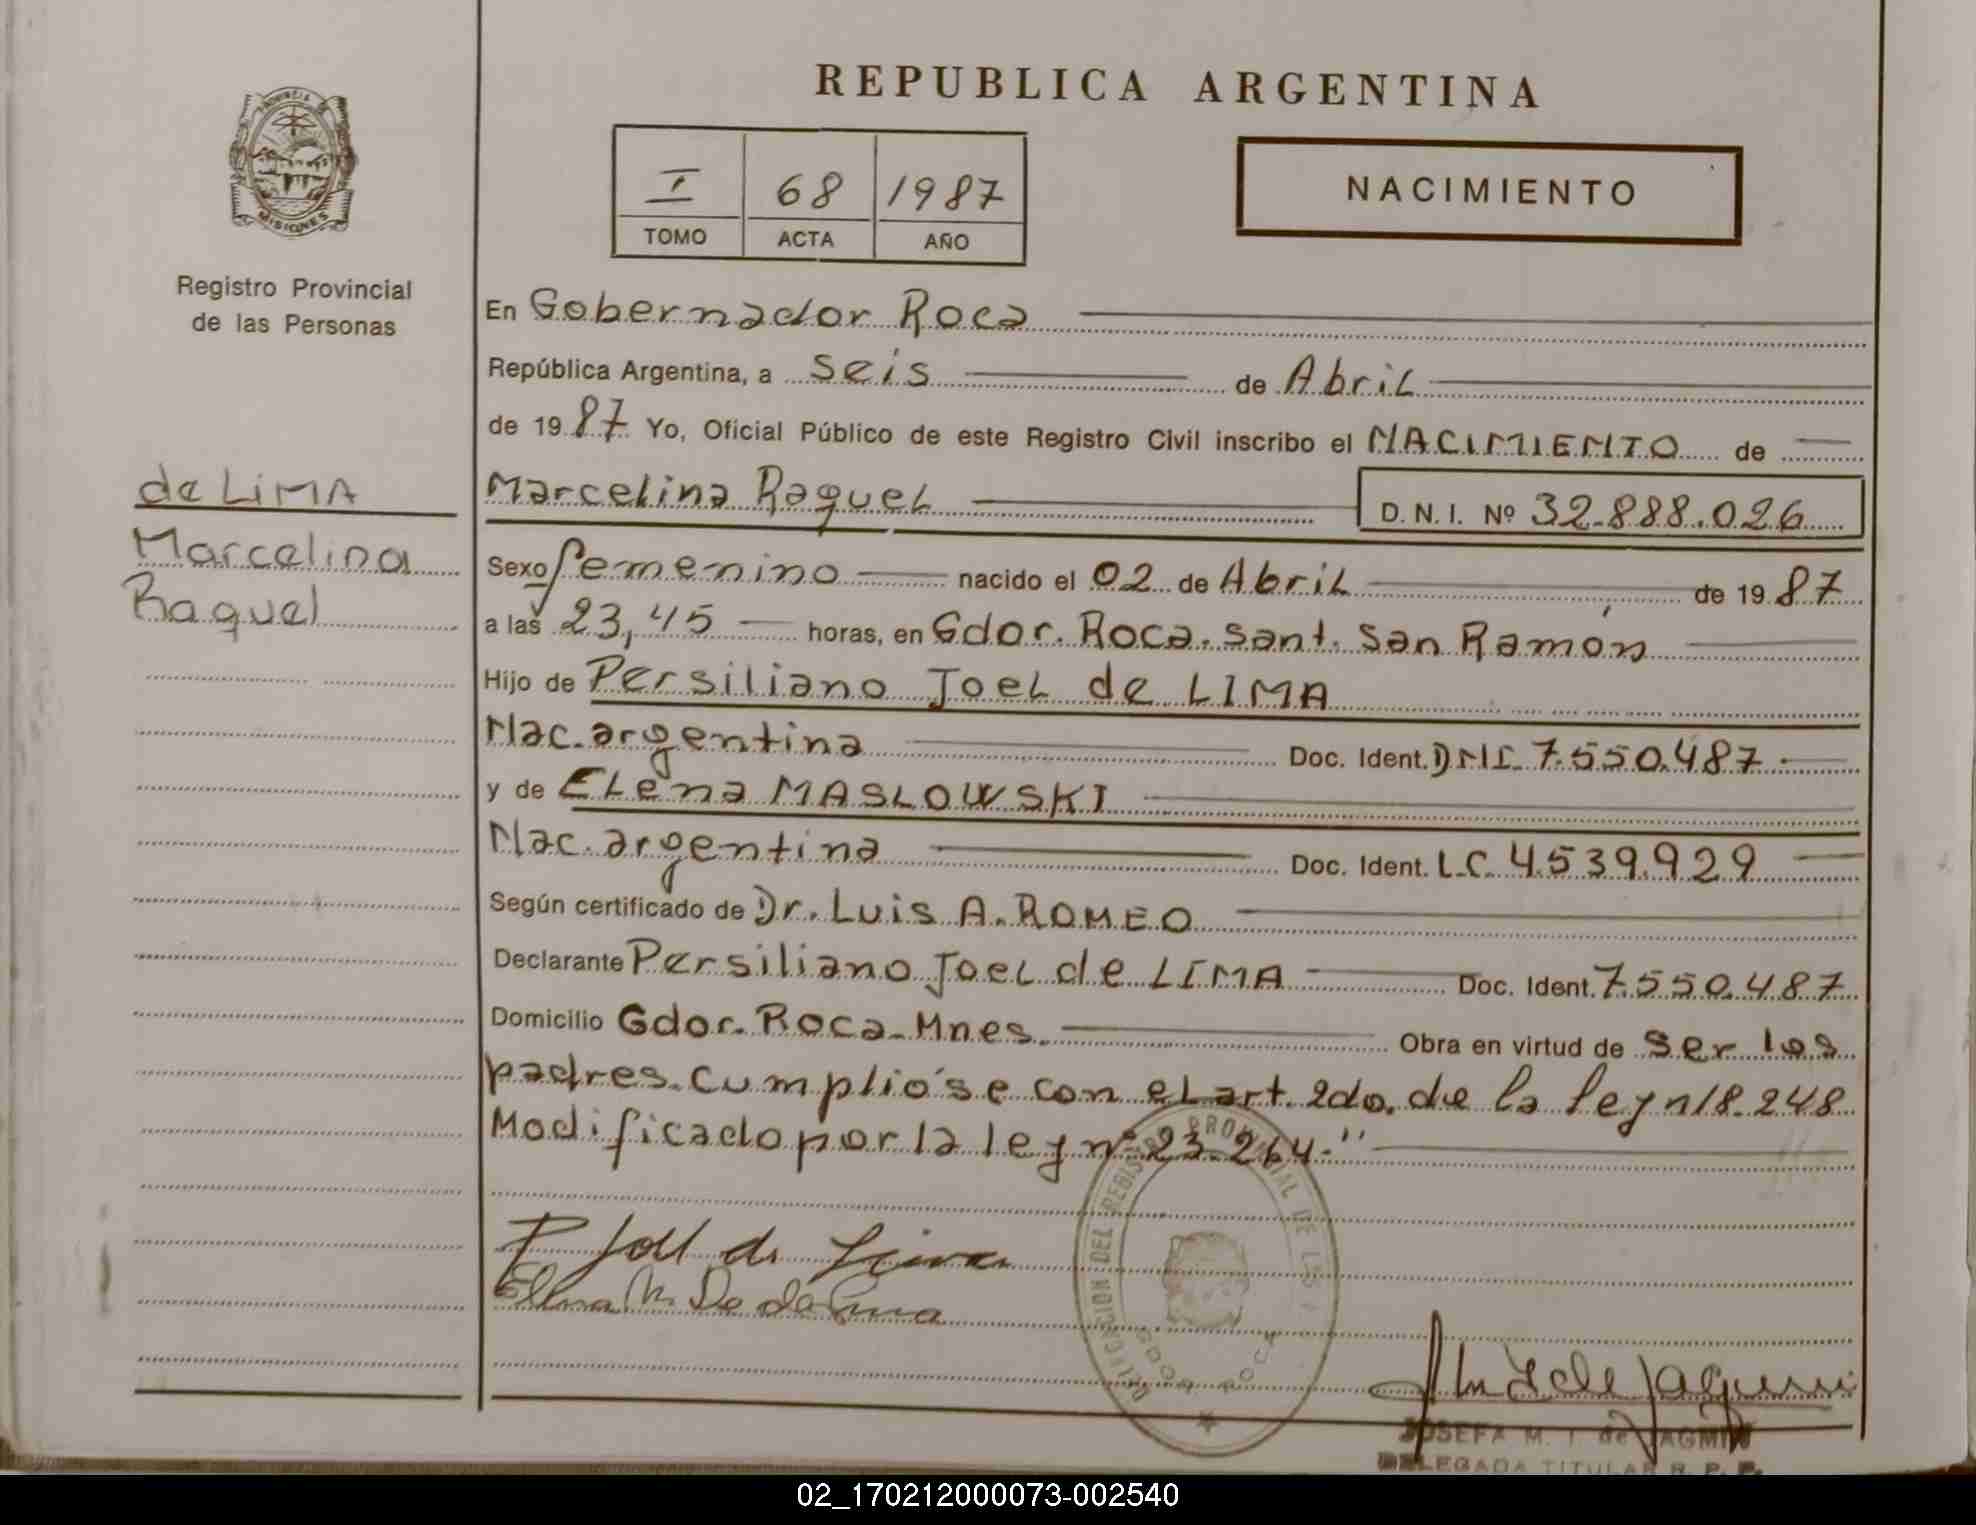 REPUBLICA ARGENTINA
PROVINCIA DE
MISIONES
Registro Provincial
de las Personas
I 68 1987
TOMO ACTA AÑO
NACIMIENTO
En Gobernador Roca
República Argentina, a seis de Abril
de 1987 Yo, Oficial Público de este Registro Civil inscribo el NACIMIENTO de
de LIMA
Marcelina Raquel
Marcelina Raquel D.N.I. Nº 32.888.026
Sexo femenino nacido el 02 de Abril de 1987
a las 23,45 horas, en Gdor. Roca. Sant. San Ramón
Hijo de Persiliano Joel de LIMA
Nac. argentina Doc. Ident. DNI. 7.550.487
y de Elena MASLOWSKI
Nac. argentina Doc. Ident. L.C. 4.539.929
Según certificado de Dr. Luis A. ROMEO
Declarante Persiliano Joel de LIMA Doc. Ident. 7.550.487
Domicilio Gdor. Roca-Mnes. Obra en virtud de ser los
padres. Cumplióse con el art. 2do. de la ley nº 18.248
Modificado por la ley nº 23.264."
P Joel de Lima
Elena M. De de Lima
DELEGACION DEL REGISTRO PROVINCIAL DE LAS
GDOR ROCA
JOSEFA M. I. de JAGMIN
DELEGADA TITULAR R. P. P.
02_170212000073-002540